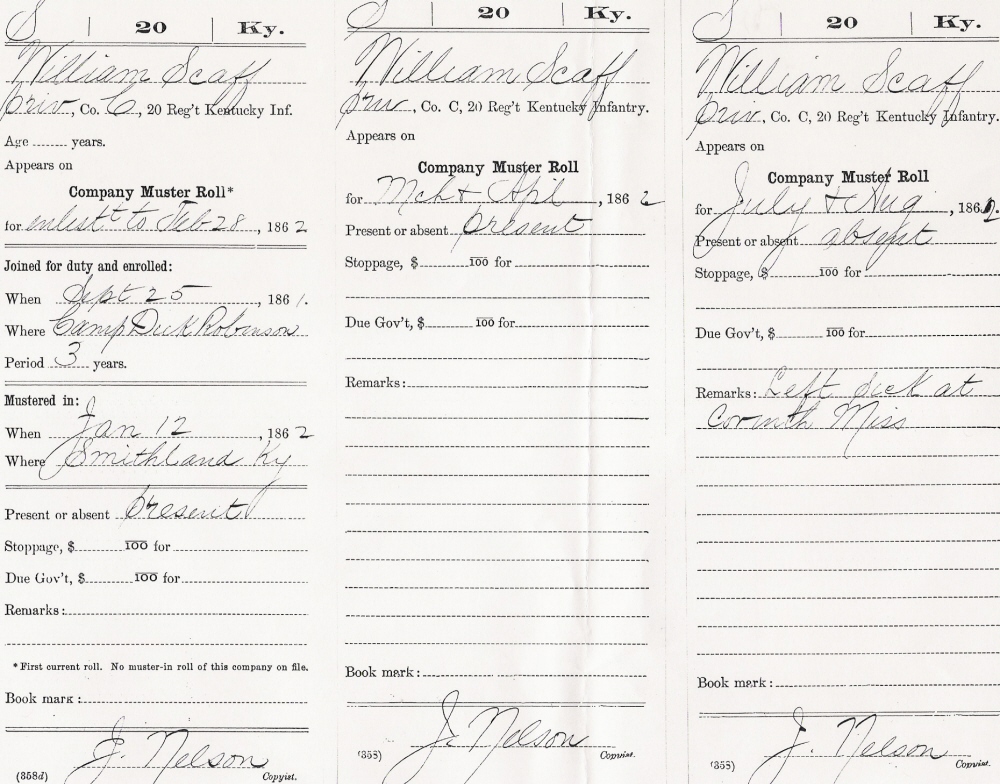 S | 20 | Ky.
William Scaff
Priv, Co. C, 20 Reg't Kentucky Inf.
Age ...... years.
Appears on
Company Muster Roll*
for enlistt to Feb 28, 1862
Joined for duty and enrolled:
When Sept 25, 1861.
Where Camp Dick Robinson
Period 3 years.
Mustered in:
When Jan 12, 1862
Where Smithland Ky
Present or absent present
Stoppage, $ 100 for
Due Gov't, $ 100 for
Remarks:
*First current roll. No muster-in roll of this company on file.
Book mark:
J. Nelson
(358d) Copyist.
S | 20 | Ky.
William Scaff
Priv, Co. C, 20 Reg't Kentucky Infantry.
Appears on
Company Muster Roll
for Mch & Apil, 1862
Present or absent Present
Stoppage, $ 100 for
Due Gov't, $ 100 for
Remarks:
Book mark:
J. Nelson
(358) Copyist.
S | 20 | Ky.
William Scaff
Priv, Co. C, 20 Reg't Kentucky Infantry.
Appears on
Company Muster Roll
for July & Aug, 1862.
Present or absent absent
Stoppage, $ 100 for
Due Gov't, $ 100 for
Remarks: Left sick at
Corinth Miss
Book mark:
J. Nelson
(358) Copyist.